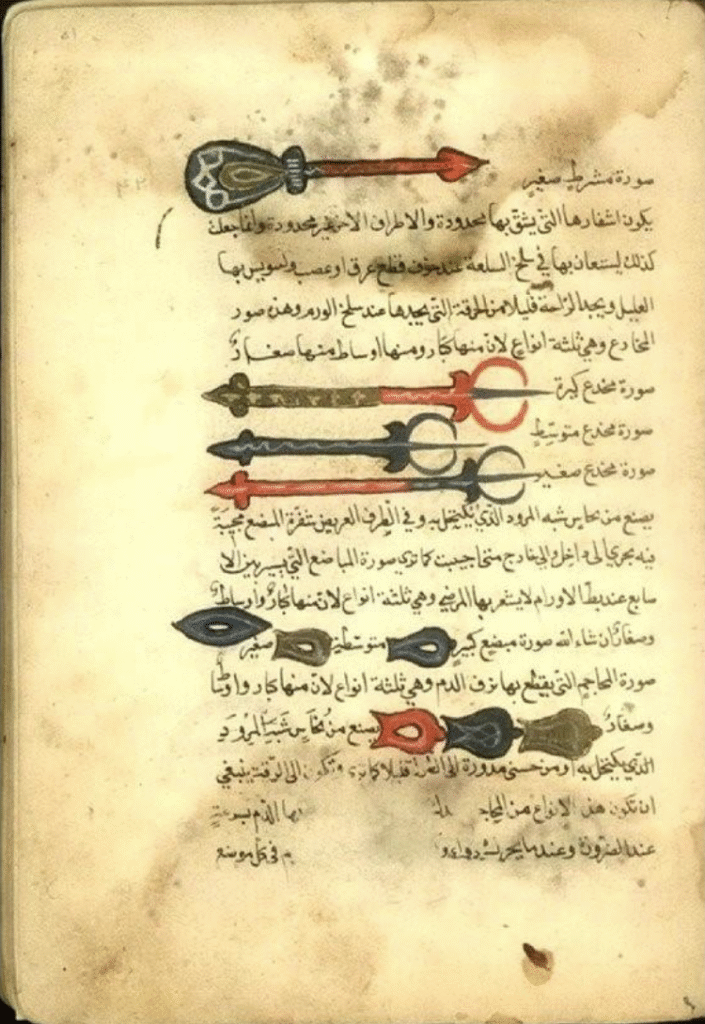 صورة مشرط صغير
يكون اشفارها التي يشق بها محدودة والاطراف الاخر غير محدودة وانما جعلت
كذلك ليستعان بها في سلخ السلعة عند خوف قطع عرق او عصب وليسويس بها
العليل ويجد الراحة قليلا من الحرقة التي يجدها عند سلخ الورم وهذه صور
المخادع وهي ثلثة انواع لان منها كبار ومنها اوساط منها صغار
صورة مخدع كبيرة
صورة مخدع متوسط
صورة مخدع صغير
يصنع من نحاس شبه المرود الذي يكتحل به وفي الطرف العريض شفرة المبضع مخبية
فيه يجري الى داخل والى خارج متى احببت كما ترى صورة المباضع التي يسر بين الا
صابع عند بط الاورام لا يشعر بها المرضى وهي ثلثة انواع لان منها كبار واوساط
وصغار ان شاء الله صورة مبضع كبير متوسطين صغير
صورة المحاجم التي يقطع بها نزف الدم وهي ثلثة انواع لان منها كبار واوسا
وصغار يصنع من نحاس شبه المرود
الذي يكتحل به او من حسنى مدورة الى الطول قليلا كما ترى وتكون الى الرقة ينبغي
ان تكون هذه الانواع من المحاجـ بها الدم بسرعة
عند الضرورة وعند ما يحرك دواء و م في كل موضع